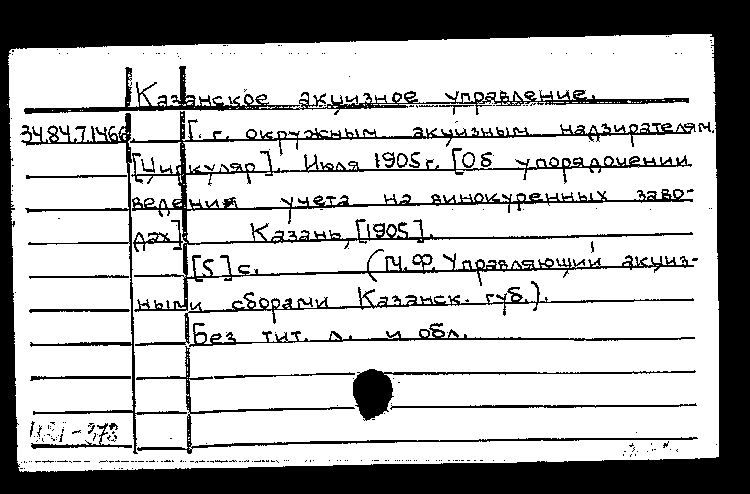 Казанское акцизное управление.
34.84.7.1466 Г. г. окружным акцизным надзирателям.
[Циркуляр]. Июля 1905 г. [Об упорядочении
ведения учета на винокуренных заво-
дах] Казань, [1905].
[5] с. (М. Ф. Управляющий акциз-
ными сборами Казанск. губ.).
Без тит. л. и обл.